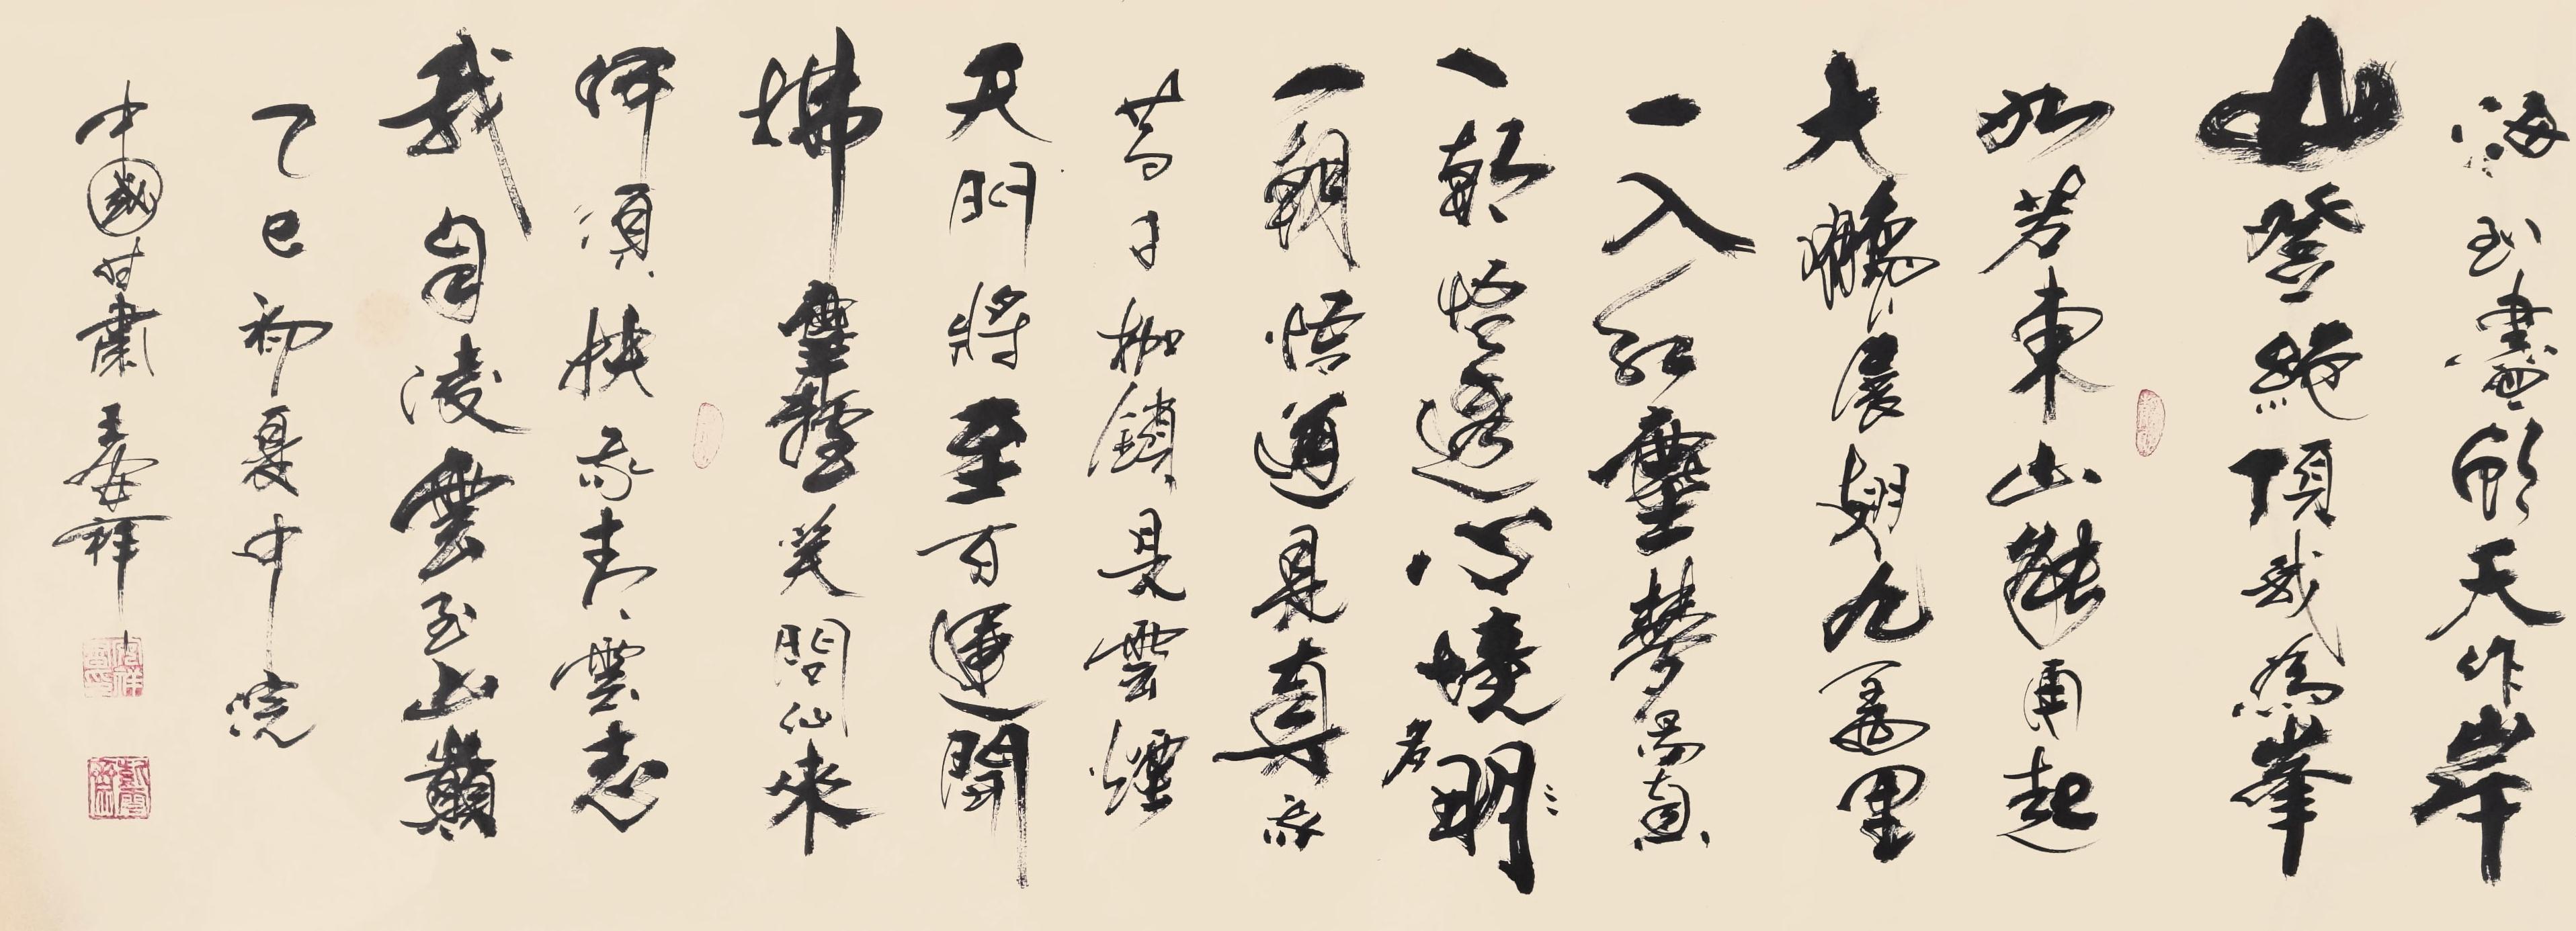 海到盡頭天作岸
山登絕頂我為峯
如若東山能再起
大鵬展翅九萬里
一入紅塵夢易真
一朝悟透心境明
名
一朝悟道見真我
昔日枷鎖是雲煙
天門將至百運開
拂塵輕笑問仙來
何須扶我青雲志
我自凌雲至山巔
乙巳初夏中院
中國甘肅 王安祥